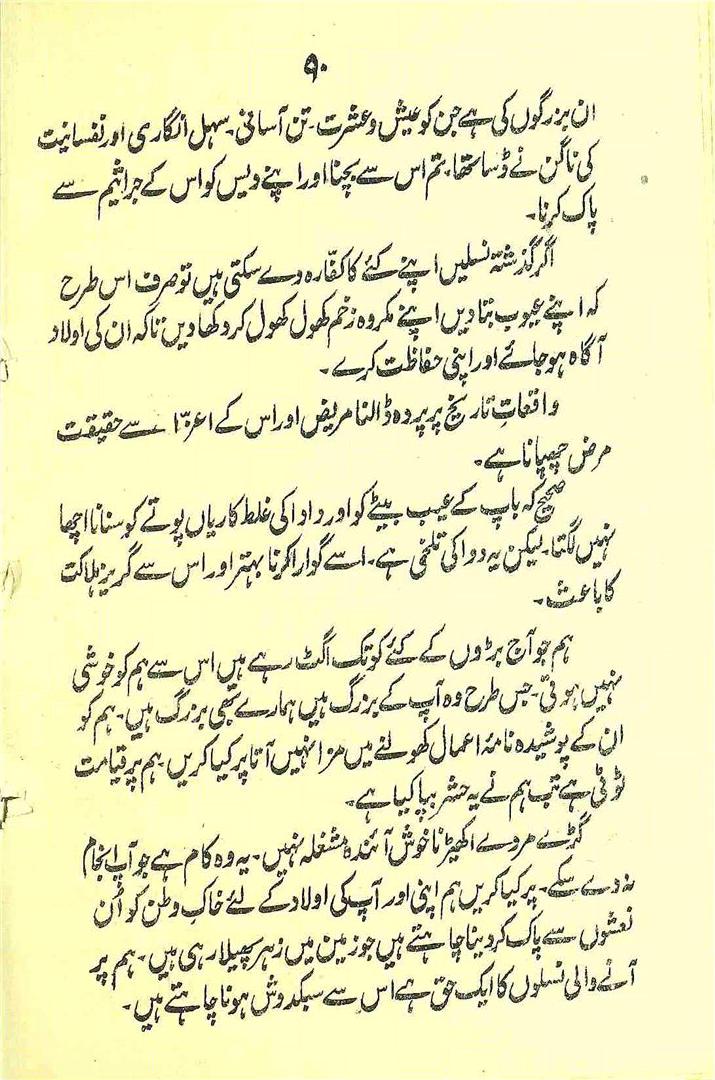 ۹۰
ان بزرگوں کی ہے جن کو عیش و عشرت۔ تن آسانی۔ سہل انگاری اور نفسانیت
کی ناگن نے ڈسا تھا۔ تم اس سے بچنا اور اپنے دیس کو اس کے جراثیم سے
پاک کرنا۔
اگر گذشتہ نسلیں اپنے کئے کا کفّارہ دے سکتی ہیں تو صرف اس طرح
کہ اپنے عیوب بتا دیں اپنے مکروہ زخم کھول کھول کر دکھا دیں تاکہ ان کی اولاد
آگاہ ہو جائے اور اپنی حفاظت کرے۔
واقعاتِ تاریخ پر پردہ ڈالنا مریض اور اس کے اعزّا سے حقیقت
مرض چھپانا ہے۔
صحیح کہ باپ کے عیب بیٹے کو اور دادا کی غلط کاریاں پوتے کو سنانا اچھا
نہیں لگتا۔ لیکن یہ دوا کی تلخی ہے۔ اسے گوارا کرنا بہتر اور اس سے گریز ہلاکت
کا باعث۔
ہم جو آج بڑوں کے کئے کو تک اگٹ رہے ہیں اس سے ہم کو خوشی
نہیں ہوتی۔ جس طرح وہ آپ کے بزرگ ہیں ہمارے بھی بزرگ ہیں۔ ہم کو
ان کے پوشیدہ نامۂ اعمال کھولنے میں مزا نہیں آتا پر کیا کریں۔ ہم پر قیامت
ٹوٹی ہے تب ہم نے یہ حشر بپا کیا ہے۔
گڑے مردے اکھیڑنا خوش آئندہ مشغلہ نہیں۔ یہ وہ کام ہے جو آپ انجام
نہ دے سکے۔ پر کیا کریں ہم اپنی اور آپ کی اولاد کے لئے خاکِ وطن کو اُن
نعشوں سے پاک کر دینا چاہتے ہیں جو زمین میں زہر پھیلا رہی ہیں۔ ہم پر
آنے والی نسلوں کا ایک حق ہے اس سے سبکدوش ہونا چاہتے ہیں۔